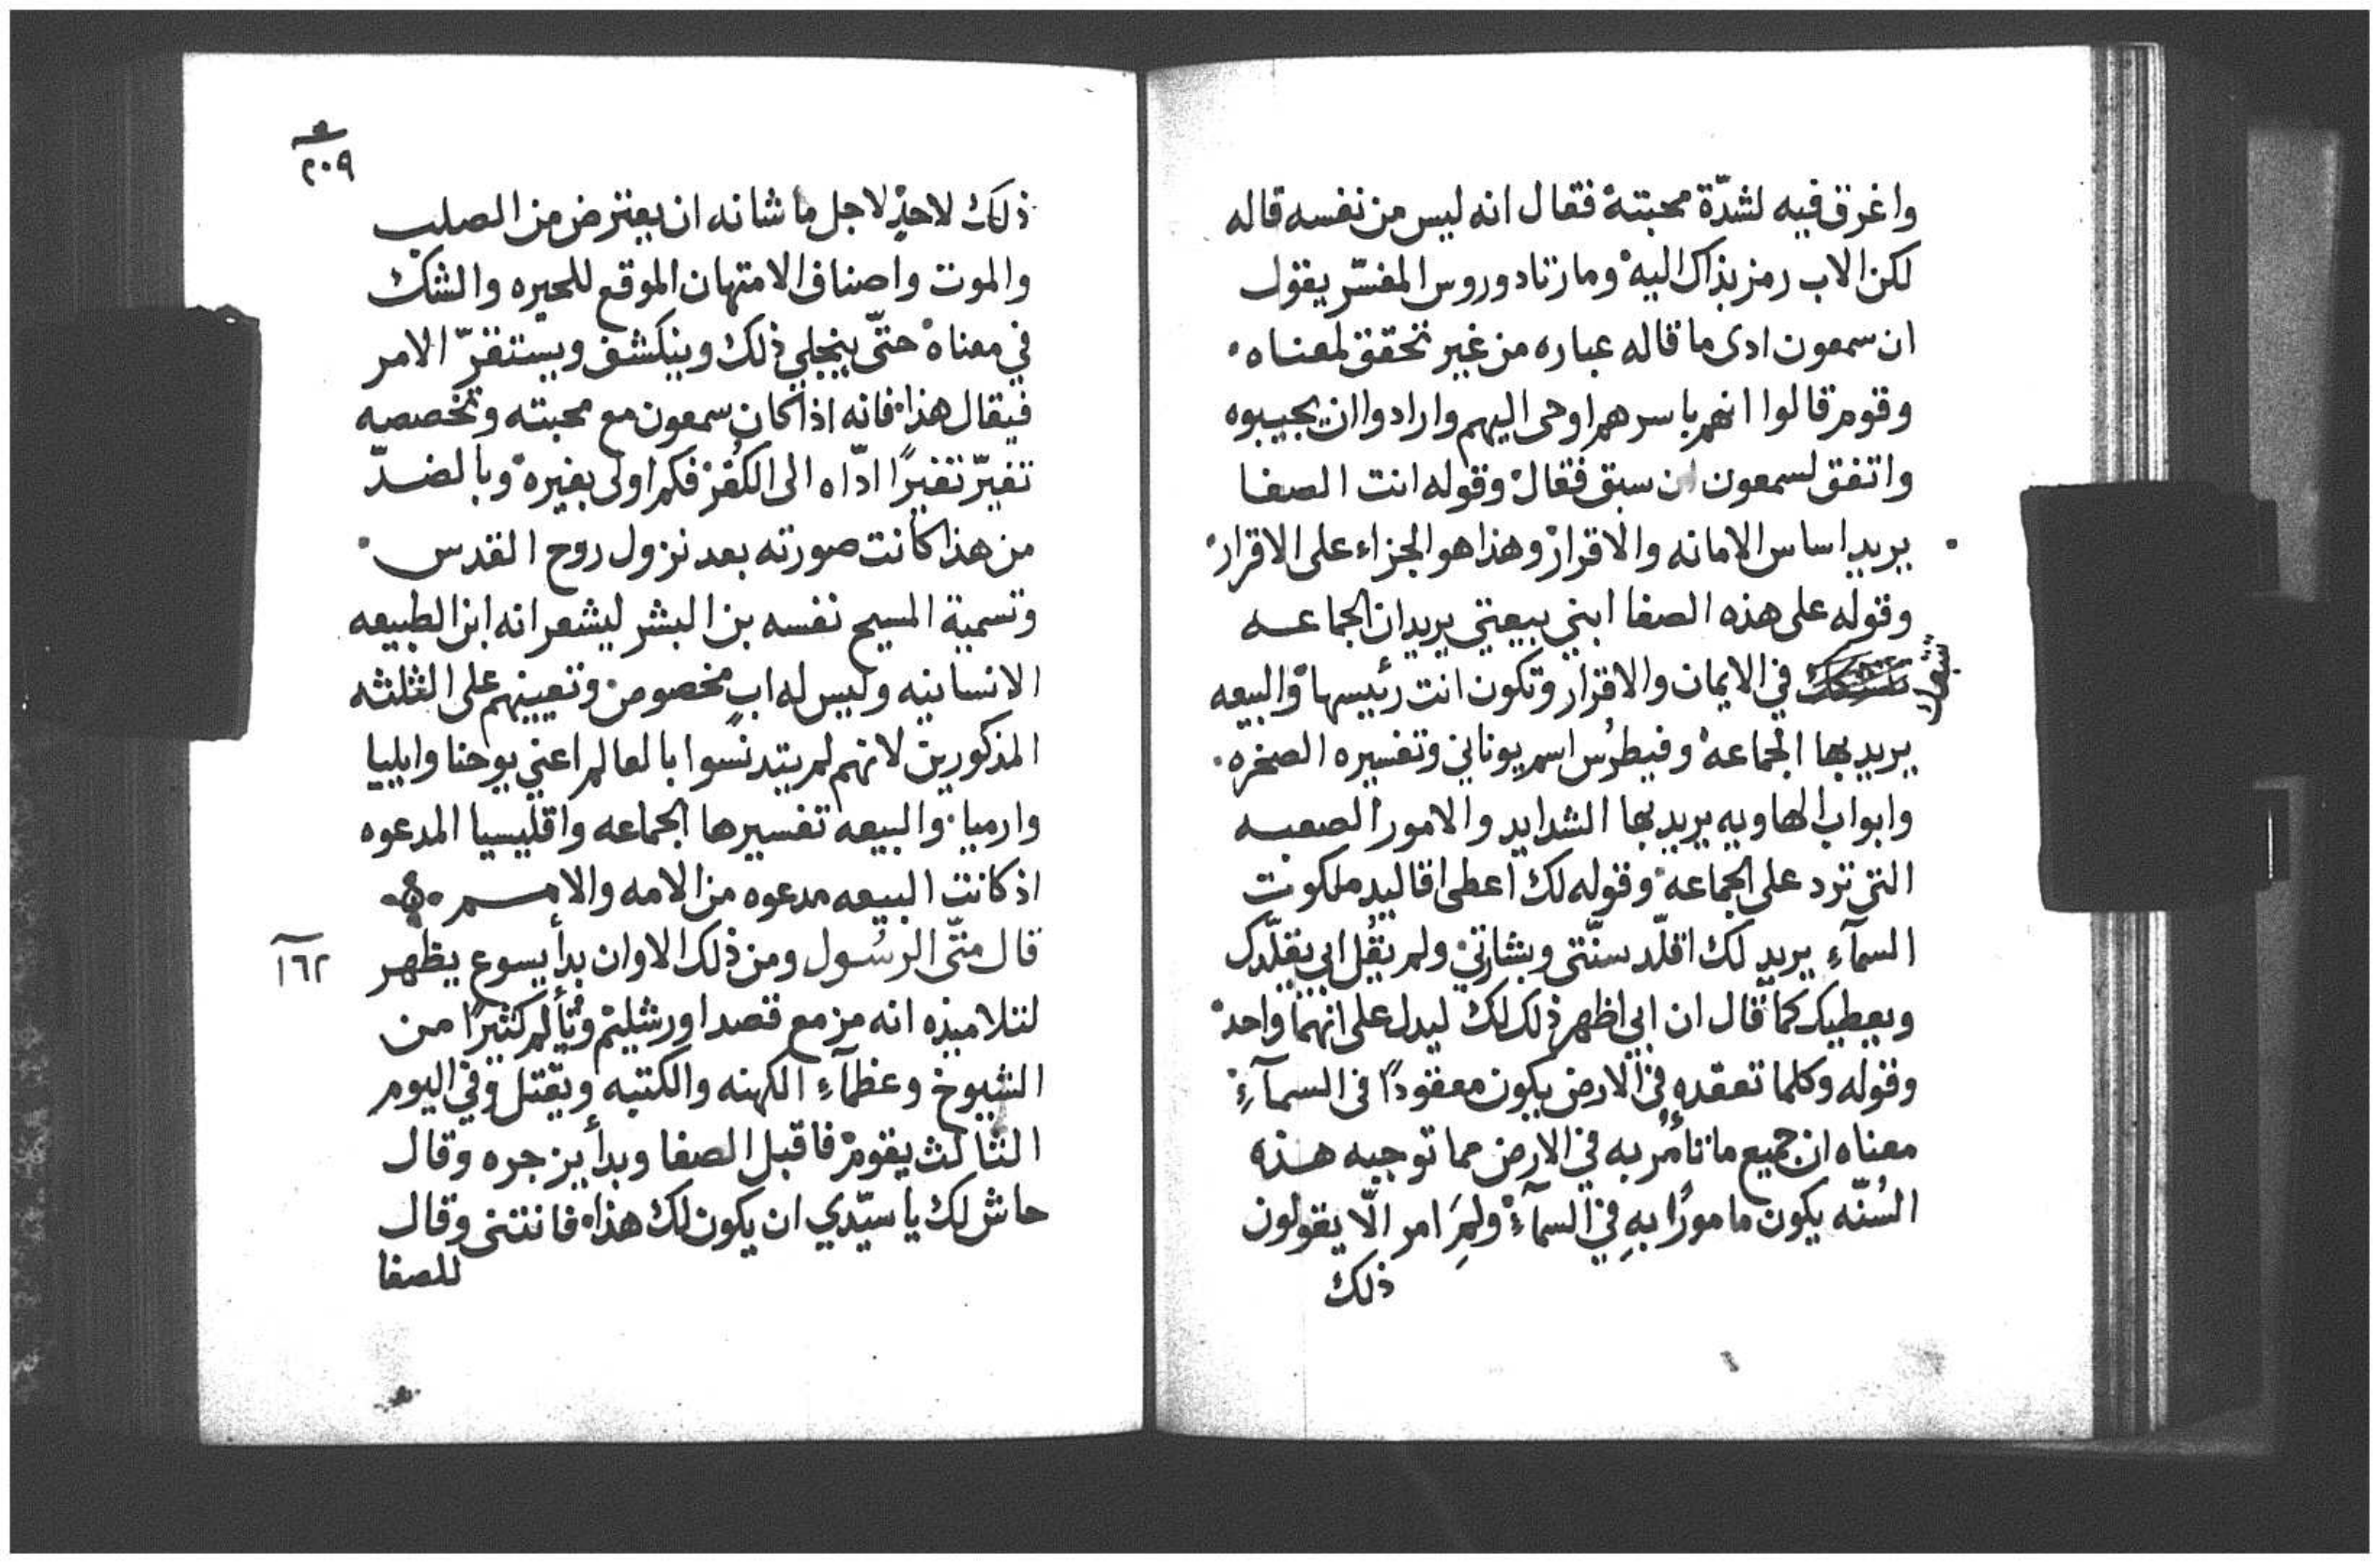 واغرق فيه لشدّة محبته فقال انه ليس من نفسه قاله
لكن الاب رمز بذاك اليه ومار تادوروس المفسّر يقول
ان سمعون ادى ما قاله عباره من غير تحقق لمعناه
وقوم قالوا انهم باسرهم اوحى اليهم وارادوا ان يجيبوه
واتفق لسمعون ان سبق فقال وقوله انت الصفا
يريد اساس الامانه والاقرار وهذا هو الجزاء على الاقرار
وقوله على هذه الصفا ابني بيعتي يريد ان الجماعه
في الايمان والاقرار وتكون انت رئيسها والبيعه
يريد بها الجماعه وفيطرُس اسم يوناني وتفسيره الصخره
وابواب الهاويه يريد بها الشدايد والامور الصعبه
التي ترد على الجماعه وقوله لك اعطى اقاليد ملكوت
السمآءِ يريد لك اقلّد سنّتي وبشارتي ولم يقُل ابي يقلّدك
ويعطيك كما قال ان ابي اظهر ذلك لك ليدل على انهما واحد
وقوله وكلما تعقده في الارض يكون معقودًا في السمآءِ
معناه ان جميع ما تأمُر به في الارض مما توجبه هذه
السُنّه يكون مامورًا بهِ في السمآءِ ولِمَ امر الّا يقولون
ذلك
٢٠٩
ذلك لاحدٍ لاجل ما شانه ان يعترض من الصلب
والموت واصناف الامتهان الموقع للحيره والشك
في معناه حتّى ينجلي ذلك وينكشف ويستقرّ الامر
فيقال هذا فانه اذا كان سمعون مع محبته وتخصصه
تغيّر تغيرًا ادّاه الى الكُفر فكم اولى بغيره وبالضدّ
من هذا كانت صورته بعد نزول روح القدس
وتسمية المسيح نفسه بن البشر ليشعر انه ابن الطبيعه
الانسانيه وليس له ابٍ مخصوص وتعيينهم على الثلثه
المذكورين لانهم لم يتدنسوا بالعالم اعني يوحنا وايليا
وارميا والبيعه تفسيرها الجماعه واقليسيا المدعوه
اذ كانت البيعه مدعوه من الامه والامم
١٦٢
قال متّى الرسُول ومن ذلك الاوان بدأ يسوع يظهر
لتلاميذه انه مزمع قصد اورشليم وتُألم كثيرًا من
الشيوخ وعظمآءِ الكهنه والكتبه ويقتل وفي اليوم
الثالث يقوم فاقبل الصفا وبدأ يزجره وقال
حاش لك يا سيّدي ان يكون لك هذا فانثنى وقال
للصفا